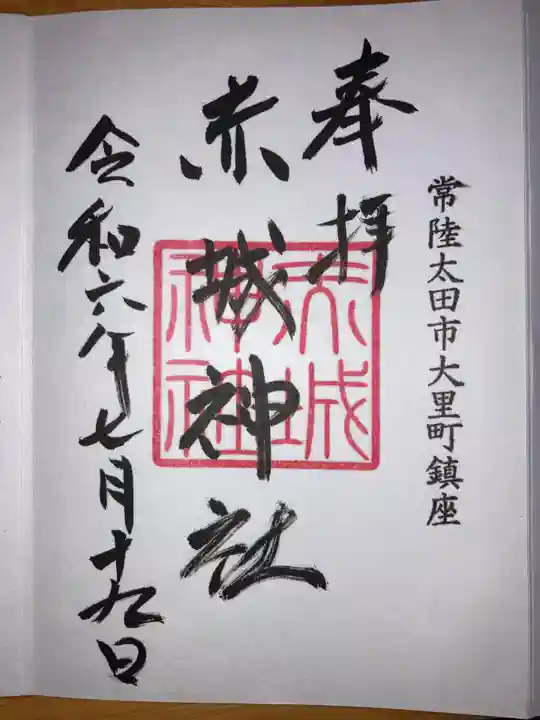 常陸太田市大里町鎮座
奉拝
赤城神社
赤城神社
令和六年七月十九日